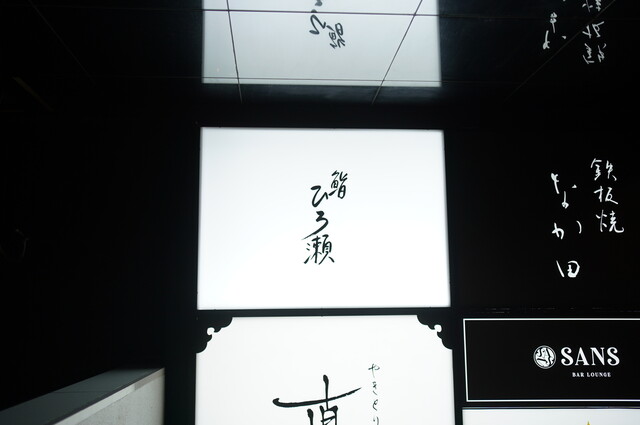 鮨
ひろ瀬
鉄板焼
なか田
やきとり
SANS
BAR LOUNGE